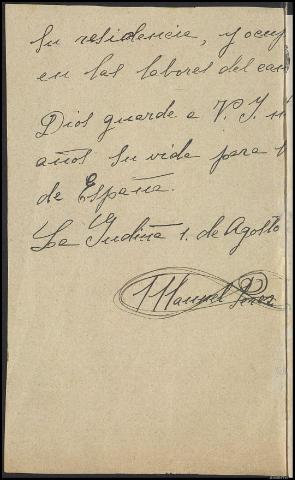 su residencia, y ocup
en las labores del cam
Dios guarde a V. I. m
años su vida para
de España.
La Gudiña 1. de Agosto
Manuel Perez